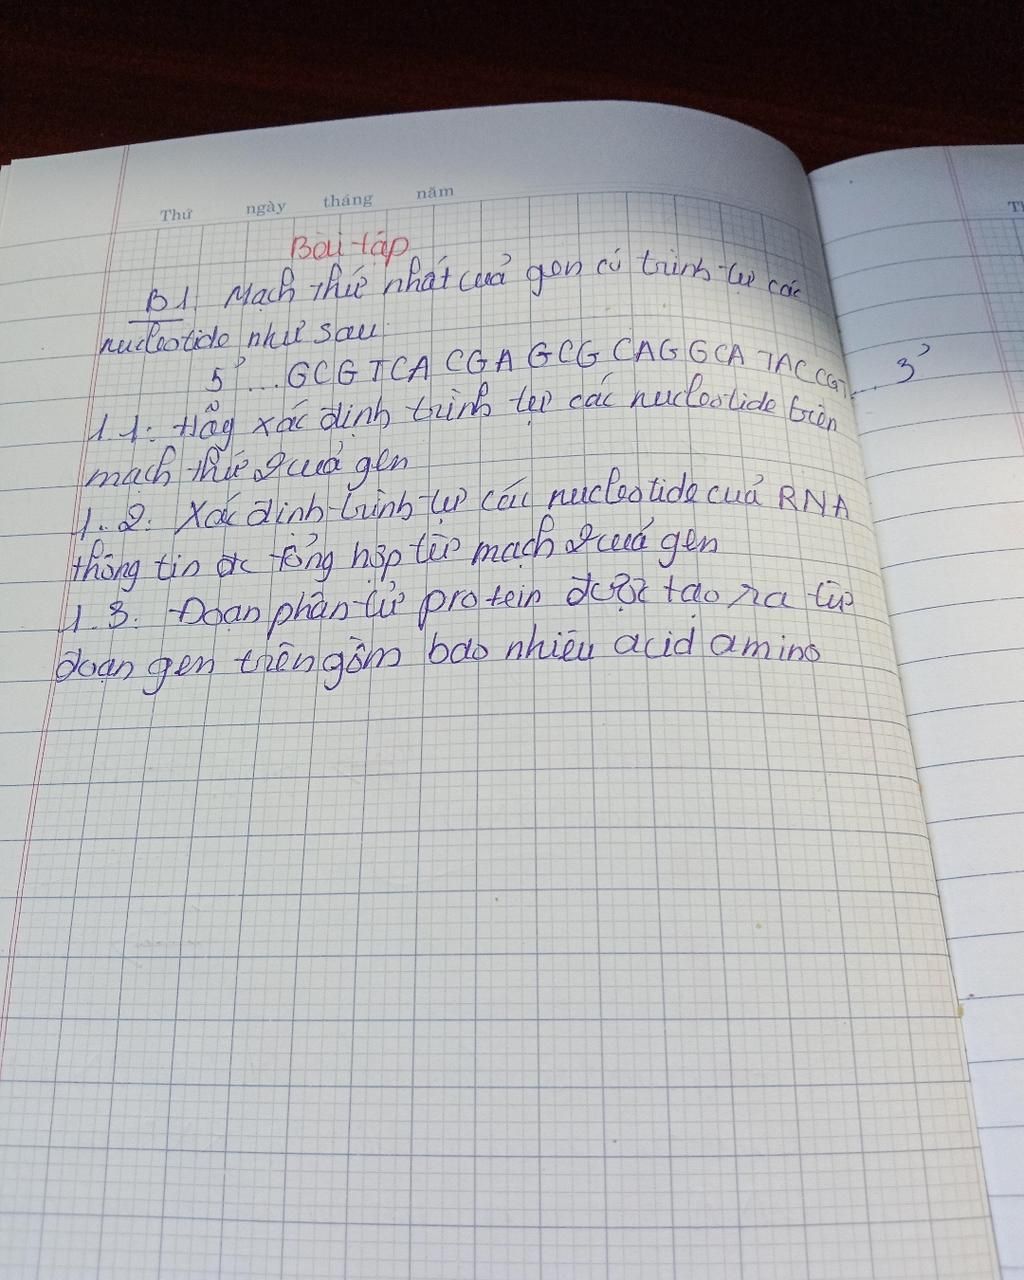 Thứ ngày tháng năm
Bài tập
B1 Mạch thứ nhất cuả gen có trình tự các
nucleotide như sau
5' ... GCG TCA CGA GCG CAG GCA TAC CGT... 3'
1 1: Hẫy xác định trình tự các nucleotide trên
mạch thứ 2 cuả gen
1. 2. Xác định trình tự các nucleotide cuả RNA
thông tin đc tổng hợp từ mạch 2 cuả gen
1. 3. Đoạn phân tử protein được tạo ra từ
đoạn gen trên gồm bao nhiêu acid amino